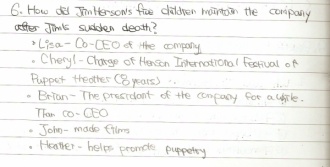 6. How did Jim Henson's five children maintain the company
after Jim's sudden death?
• Lisa - Co-CEO of the company
• Cheryl - Charge of Henson International Festival of
Puppet theather (8 years).
• Brian - The president of the company for a while.
Than co-CEO
• John - made films
• Heather - helps promote puppetry